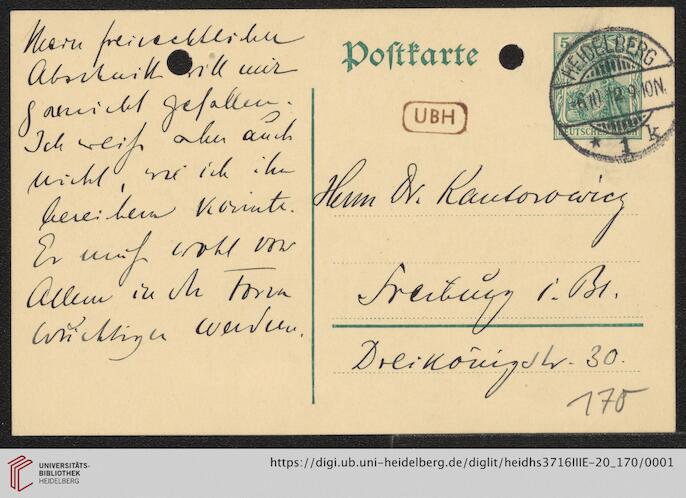 Mein freirechtlicher
Abschnitt will mir
garnicht gefallen.
Ich weiß aber auch
nicht, wie ich ihn
bereichern könnte.
Er muß wohl vor
Allem in der Form
wuchtiger werden.
Postkarte
UBH
5
HEIDELBERG
12.9-10N.
DEUTSCHES REICH
* 1 k
Herrn Dr. Kantorowicz
Freiburg i. Br.
Dreikönigstr. 30.
170
UNIVERSITÄTS-
BIBLIOTHEK
HEIDELBERG
https://digi.ub.uni-heidelberg.de/diglit/heidhs3716IIIE-20_170/0001